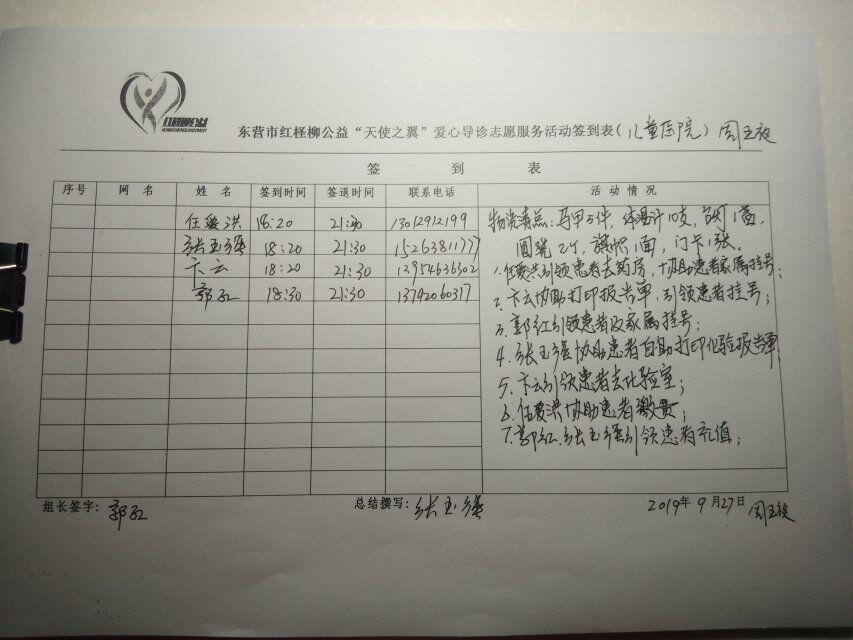 红柽柳公益
HONGCHENGLIUGONGYI
东营市红柽柳公益“天使之翼”爱心导诊志愿服务活动签到表(儿童医院) 周五夜
签 到 表
序号 网 名 姓 名 签到时间 签退时间 联系电话 活 动 情 况
任爱洪 18:20 21:30 13012912199
张玉强 18:20 21:30 15263811777
卞云 18:20 21:30 13954636302
郭红 18:30 21:30 13792060317
物资清点:马甲5件,体温计10支,台灯1盏,
圆凳2个,旗帜1面,门卡1张。
1.任爱洪引领患者去药房,协助患者家属挂号;
2.卞云协助打印报告单,引领患者挂号;
3.郭红引领患者及家属挂号;
4.张玉强协助患者自助打印化验报告单;
5.卞云引领患者去化验室;
6.任爱洪协助患者缴费;
7.郭红.张玉强引领患者充值;
组长签字:郭红 总结撰写:张玉强 2019年9月27日 周五夜